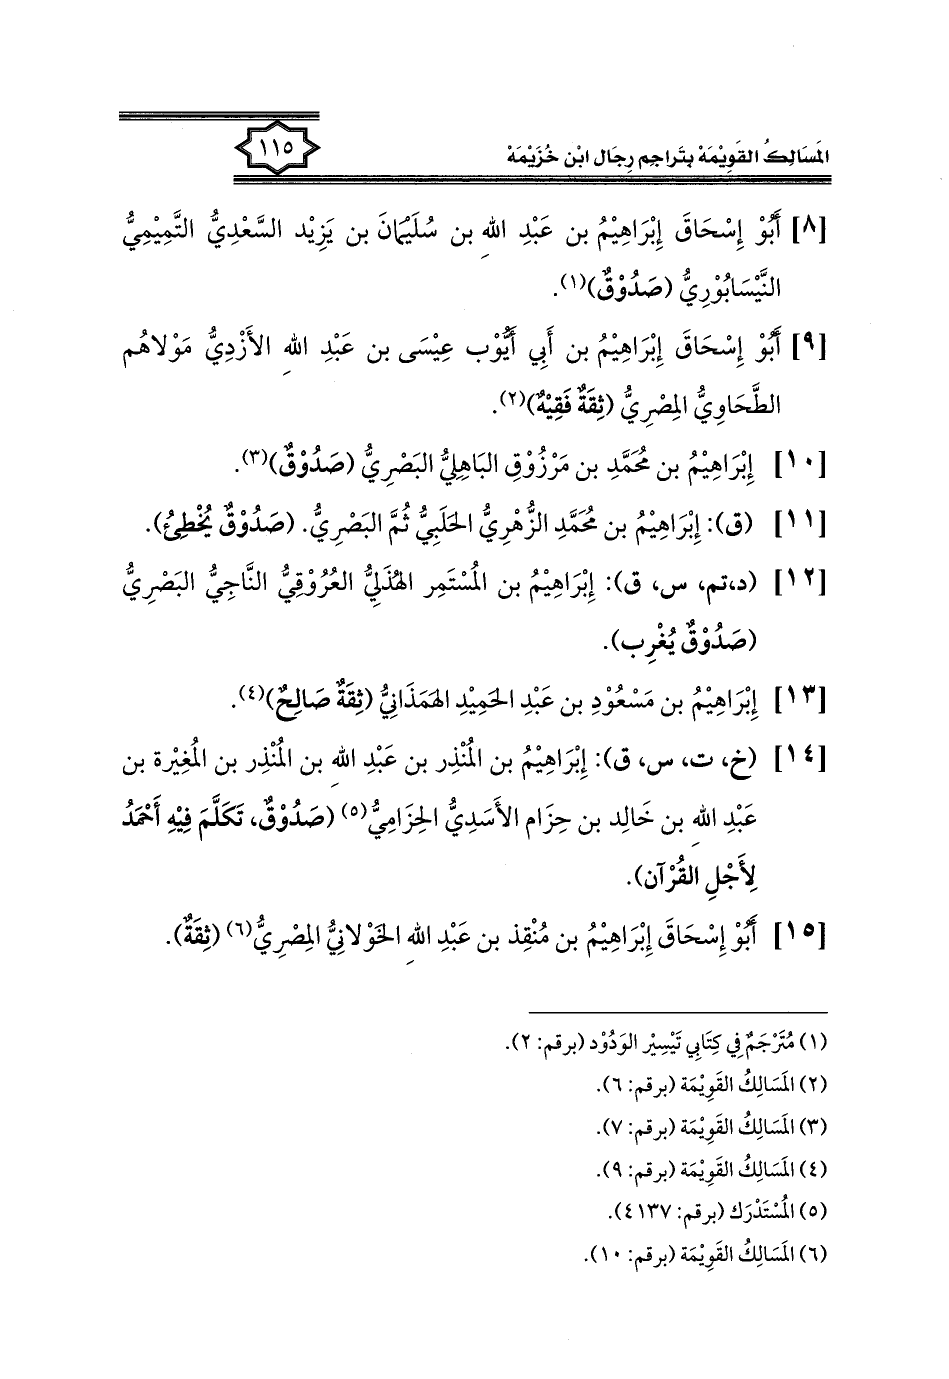 المَسَالِكُ القَوِيْمَهْ بِتَراجِم رِجَال ابْن خُزَيْمَهْ
١١٥
[٨] أَبُوْ إِسْحَاقَ إِبْرَاهِيْمُ بن عَبْدِ اللهِ بن سُلَيْمَانَ بن يَزِيْد السَّعْدِيُّ التَّمِيْمِيُّ
النَّيْسَابُوْرِيُّ (صَدُوْقٌ)(١).
[٩] أَبُوْ إِسْحَاقَ إِبْرَاهِيْمُ بن أَبي أَيُّوْب عِيْسَى بن عَبْدِ اللهِ الأَزْدِيُّ مَوْلاهُم
الطَّحَاوِيُّ المِصْرِيُّ (ثِقَةٌ فَقِيْهٌ)(٢).
[١٠] إِبْرَاهِيْمُ بن مُحَمَّدِ بن مَرْزُوْقٍ البَاهِلِيُّ البَصْرِيُّ (صَدُوْقٌ)(٣).
[١١] (ق): إِبْرَاهِيْمُ بن مُحَمَّدِ الزُّهْرِيُّ الحَلَبِيُّ ثُمَّ البَصْرِيُّ. (صَدُوْقٌ يُخْطِئُ).
[١٢] (د،تم، س، ق): إِبْرَاهِيْمُ بن المُسْتَمِر الهُذَلِيُّ العُرُوْقِيُّ النَّاجِيُّ البَصْرِيُّ
(صَدُوْقٌ يُغْرِب).
[١٣] إِبْرَاهِيْمُ بن مَسْعُوْدِ بن عَبْدِ الحَمِيْدِ الهَمَذَانِيُّ (ثِقَةٌ صَالِحٌ)(٤).
[١٤] (خ، ت، س، ق): إِبْرَاهِيْمُ بن المُنْذِر بن عَبْدِ اللهِ بن المُنْذِر بن المُغِيْرة بن
عَبْدِ اللهِ بن خَالِد بن حِزَام الأَسَدِيُّ الحِزَامِيُّ(٥) (صَدُوْقٌ، تَكَلَّمَ فِيْهِ أَحْمَدُ
لِأَجْلِ القُرْآن).
[١٥] أَبُوْ إِسْحَاقَ إِبْرَاهِيْمُ بن مُنْقِذ بن عَبْدِ اللهِ الخَوْلانِيُّ المِصْرِيُّ(٦) (ثِقَةٌ).
(١) مُتَرْجَمٌ فِي كِتَابِي تَيْسِيْر الوَدُوْد (برقم: ٢).
(٢) المَسَالِكُ القَوِيْمَة (برقم: ٦).
(٣) المَسَالِكُ القَوِيْمَة (برقم: ٧).
(٤) المَسَالِكُ القَوِيْمَة (برقم: ٩).
(٥) المُسْتَدْرَك (برقم: ٤١٣٧).
(٦) المَسَالِكُ القَوِيْمَة (برقم: ١٠).